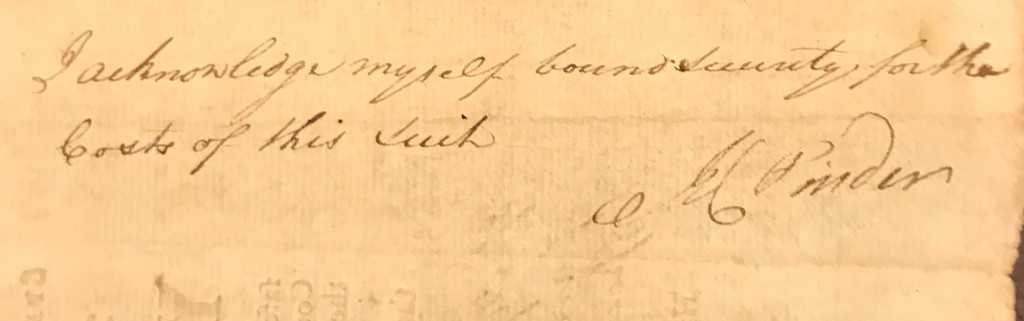 I acknowledge myself bound security for the
Costs of this suit
Pinder